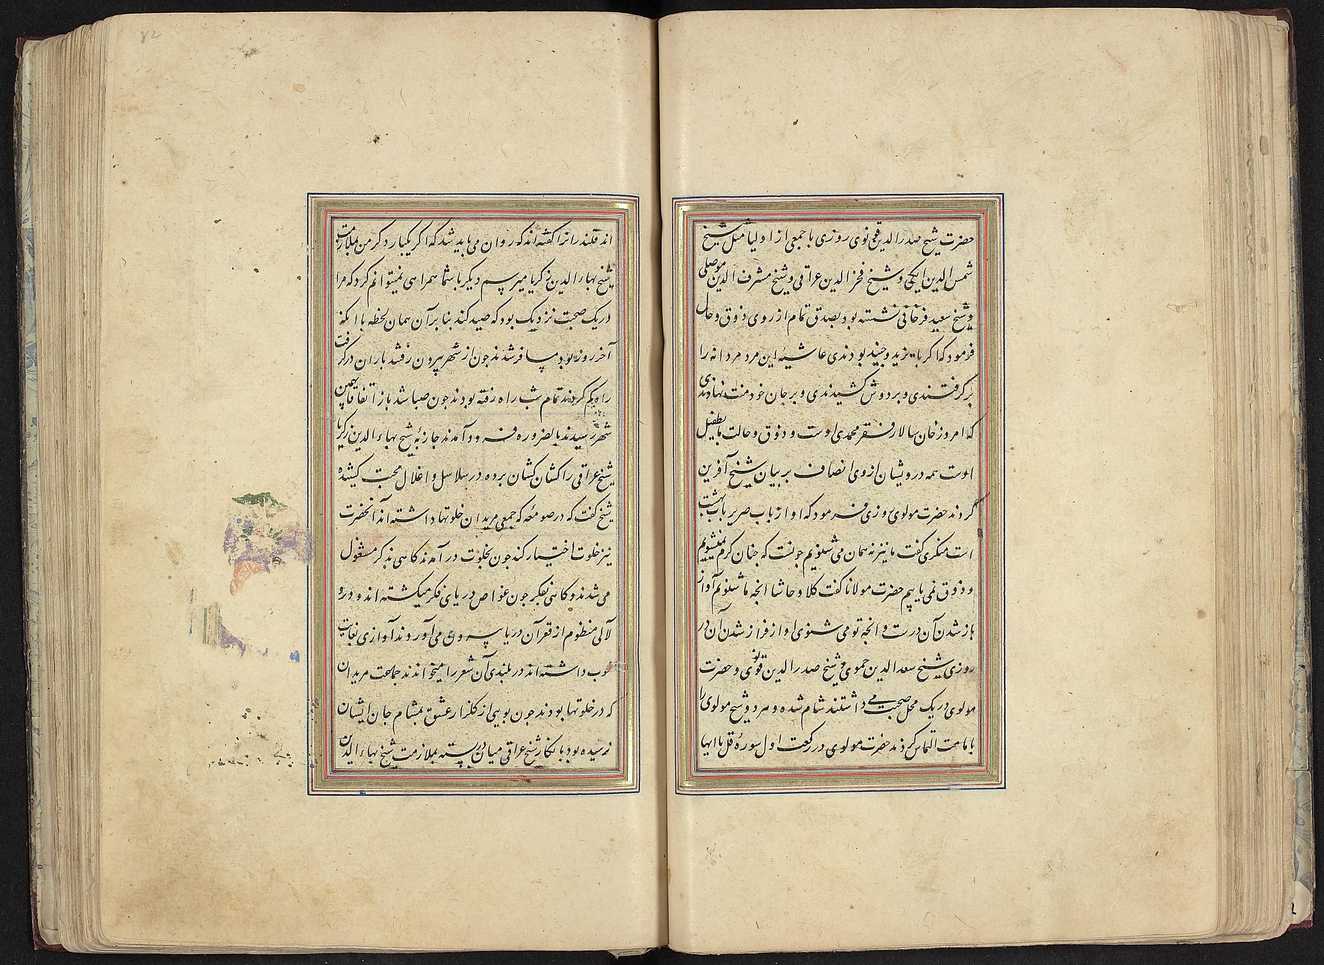 حضرت شیخ صدرالدین قونوی روزی با جمعی از اولیا مثل شیخ
شمس الدین ایکی و شیخ فخرالدین عراقی و شیخ مشرف الدین موصلی
و شیخ سعید فرغانی نشسته بود بصدق تمام از روی ذوق و حال
فرمود که اگر بایزید و جنید بودندی غاشیه این مرد مردانه را
برگرفتندی و بر دوش کشیدندی و بر جان خود منت نهادندی
که امروز خان سالار فقر محمدی اوست و ذوق و حالت ما بطفیل
اوست همه درویشان از روی انصاف بر بیان شیخ آفرین
کردند حضرت مولوی روزی فرمود که آواز باب صریر باب بهشت
است منکری گفت ما نیز نه همان می شنویم چونست که چنان گرم نمیشویم
و ذوق نمی یابیم حضرت مولانا گفت کلا و حاشا انچه ما شنویم آواز
باز شدن آن درست و انچه تو می شنوی آواز فراز شدن آن در
روزی شیخ سعدالدین حموی و شیخ صدرالدین قونوی و حضرت
مولوی در یک محل صحبت می داشتند شام شده و هر دو شیخ مولوی را
بامامت التماس کردند حضرت مولوی در رکعت اول سوره قل یا ایها
اند قلندرانرا گفته اند که روان می باید شد که اگر یکبار دیگر من بملازمت
شیخ بهاءالدین زکریا میرسم دیگر با شما همراهی نمیتوانم کرد که مرا
در یک صحبت نزدیک بود که صید کند بنابر آن همان لحظه با آنکه
آخر روز بود مسافر شدند چون از شهر بیرون رفتند باران در گرفت
راه گم کردند تمام شب راه رفته بودند چون صبا شد باز اتفاقا بهمین
شهر رسیدند بالضروره فرود آمدند جاذبه شیخ بهاءالدین زکریا
شیخ عراقی را کشان کشان برده در سلاسل و اغلال محبت کشیده
شیخ گفت که در صومعه که جمعی مریدان خلوتها داشته اند آنحضرت
نیز خلوت اختیار کند چون بخلوت در آمدند گاهی بذکر مشغول
می شدند و گاهی بفکر چون غواص در دریای فکر میگشته اند و درر
لآلی منظوم از قعر آن دریا بیرون می آوردند آوازی بغایت
خوب داشته اند در بلندی آن شعر را میخواندند جماعت مریدان
که در خلوتها بودند چون بویی از گلزار عشق بمشام جان ایشان
نرسیده بود بانکار شیخ عراقی میان در بسته بملازمت شیخ بهاءالدین